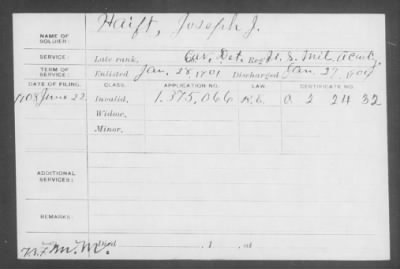 Haift, Joseph J.
NAME OF SOLDIER:
SERVICE Late rank, Cav. Det. Reg't U. S. Mil. Acad'y,
TERM OF SERVICE Enlisted Jan. 28, 1901 Discharged Jan. 27, 1904
DATE OF FILING. CLASS. APPLICATION NO. LAW. CERTIFICATE NO.
1908 June 22 Invalid, 1.375,066 C 2 24 32
Widow,
Minor,
ADDITIONAL SERVICES:
REMARKS:
Died , 1 , at